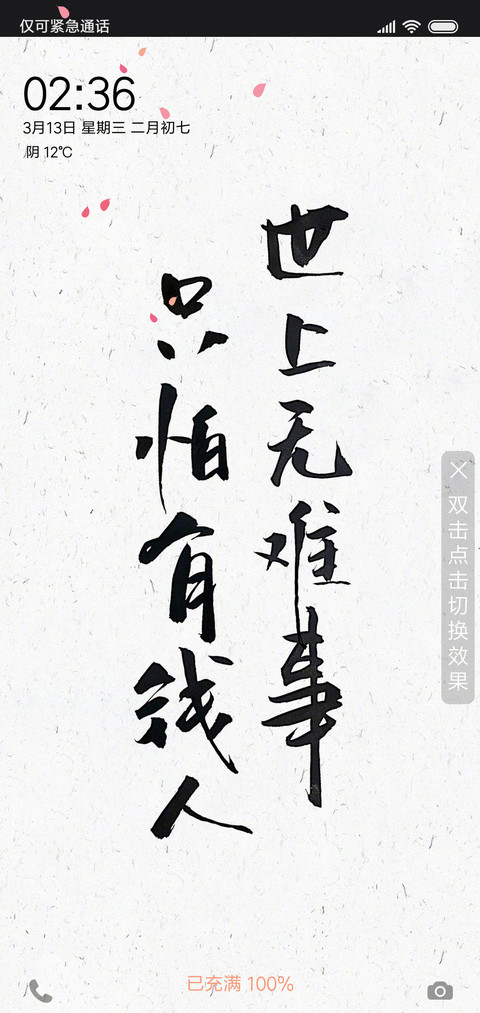 仅可紧急通话
02:36
3月13日 星期三 二月初七
阴 12℃
世上无难事
只怕有钱人
双击点击切换效果
已充满 100%